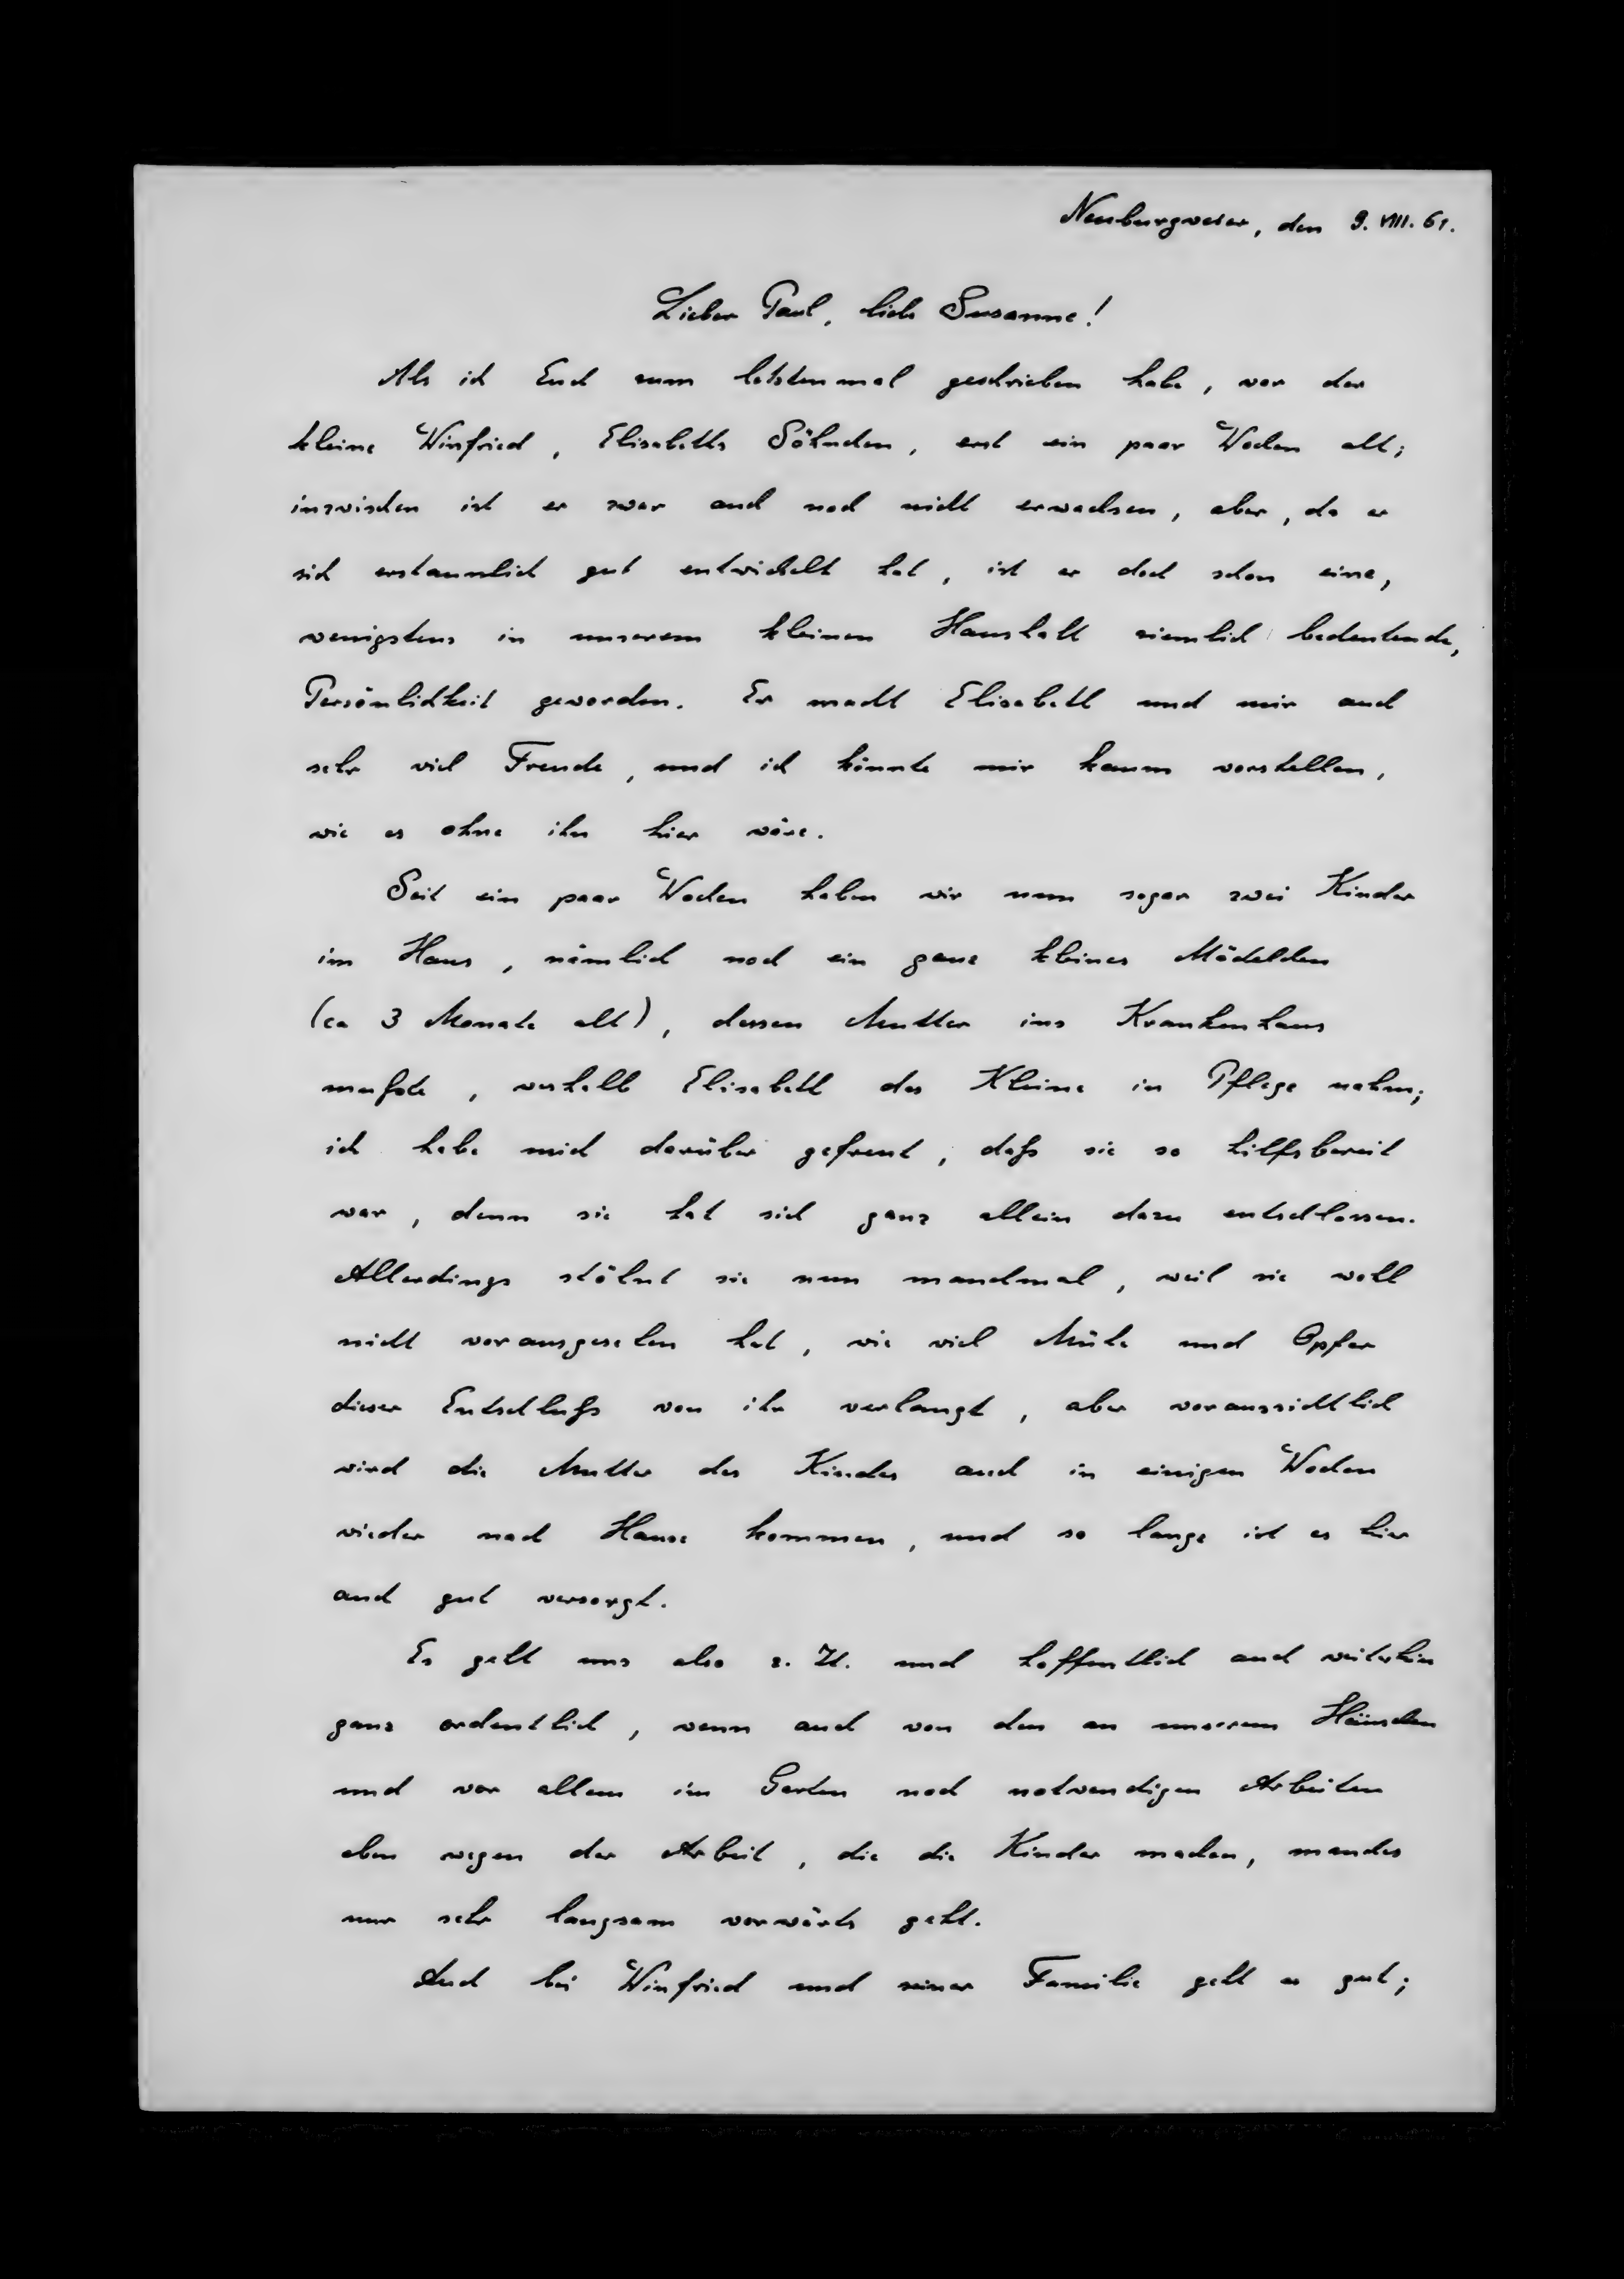 Neuburgweier, den 9. VIII. 61.
Lieber Paul, liebe Susanne!
Als ich Euch zum letztenmal geschrieben habe, war der
kleine Winfried, Elisabeths Söhnchen, erst ein paar Wochen alt;
inzwischen ist er zwar auch noch nicht erwachsen, aber, da er
sich erstaunlich gut entwickelt hat, ist er doch schon eine,
wenigstens in unserem kleinen Haushalt ziemlich bedeutende,
Persönlichkeit geworden. Er macht Elisabeth und mir auch
sehr viel Freude, und ich könnte mir kaum vorstellen,
wie es ohne ihn hier wäre.
Seit ein paar Wochen haben wir nun sogar zwei Kinder
im Haus, nämlich noch ein ganz kleines Mädelchen
(ca 3 Monate alt), dessen Mutter ins Krankenhaus
mußte, weshalb Elisabeth das Kleine in Pflege nahm;
ich habe mich darüber gefreut, daß sie so hilfsbereit
war, denn sie hat sich ganz allein dazu entschlossen.
Allerdings stöhnt sie nun manchmal, weil sie wohl
nicht vorausgesehen hat, wie viel Mühe und Opfer
dieser Entschluß von ihr verlangt, aber voraussichtlich
wird die Mutter des Kindes auch in einigen Wochen
wieder nach Hause kommen, und so lange ist es hier
auch gut versorgt.
Es geht uns also z. Zt. und hoffentlich auch weiterhin
ganz ordentlich, wenn auch von den an unserem Häuschen
und vor allem im Garten noch notwendigen Arbeiten
eben wegen der Arbeit, die die Kinder machen, manches
nur sehr langsam vorwärts geht.
Auch bei Winfried und seiner Familie geht es gut;